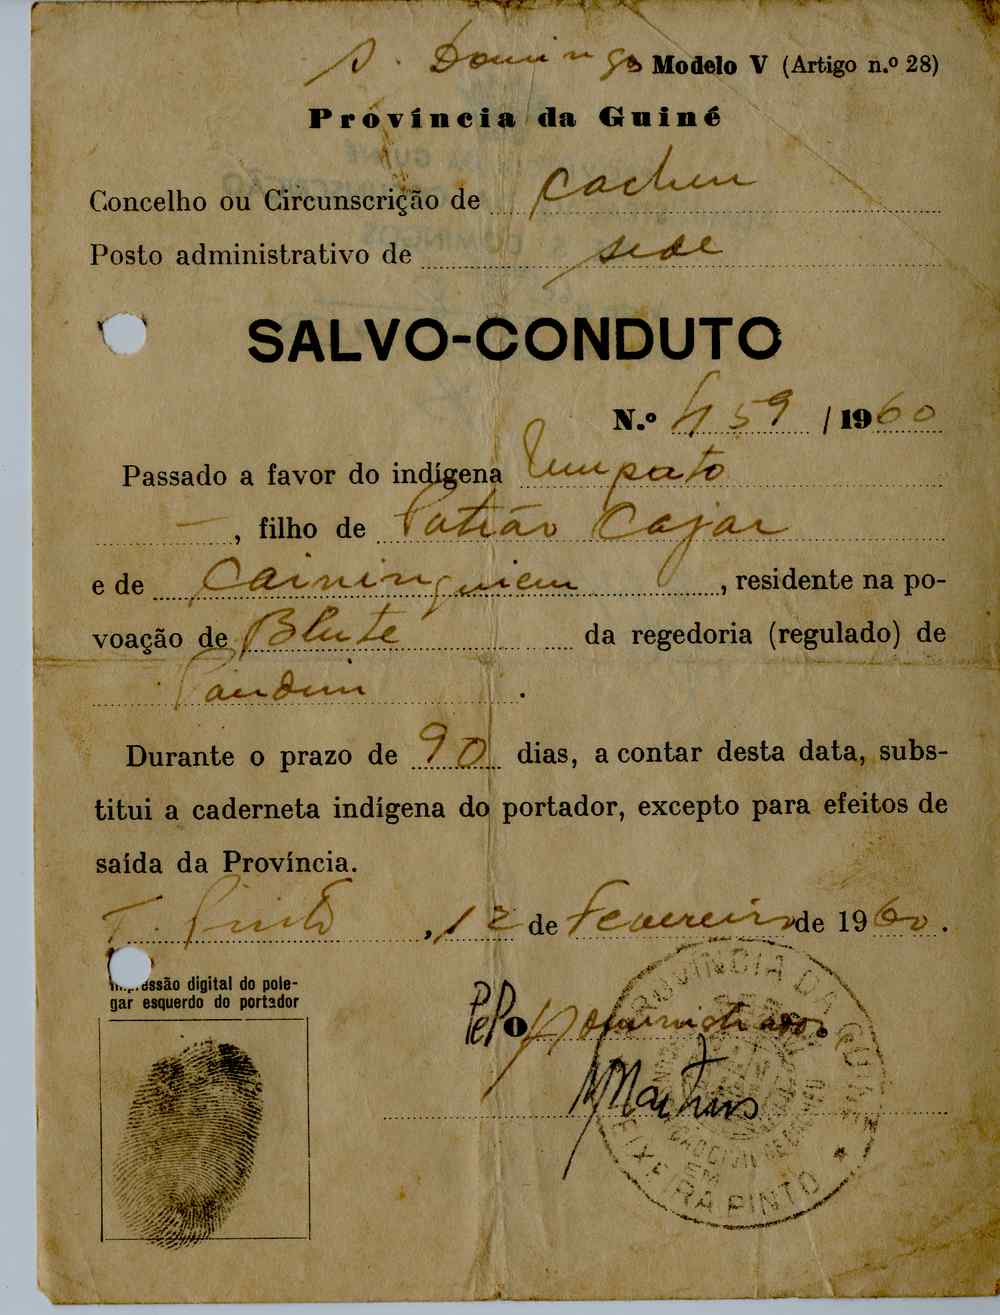 S. Domingos Modelo V (Artigo n.º 28)
Província da Guiné
Concelho ou Circunscrição de Cacheu
Posto administrativo de sede
SALVO-CONDUTO
N.º 459 / 1960
Passado a favor do indígena Umpato
—, filho de Patrão Cajar
e de Caininguiem, residente na po-
voação de Blute da regedoria (regulado) de
Pandim.
Durante o prazo de 90 dias, a contar desta data, subs-
titui a caderneta indígena do portador, excepto para efeitos de
saída da Província.
T. Pinto, 12 de Fevereiro de 1960.
Impressão digital do pole-
gar esquerdo do portador
Pel O Administrador.
MMartins
PROVÍNCIA DA GUINÉ
EM
TEIXEIRA PINTO